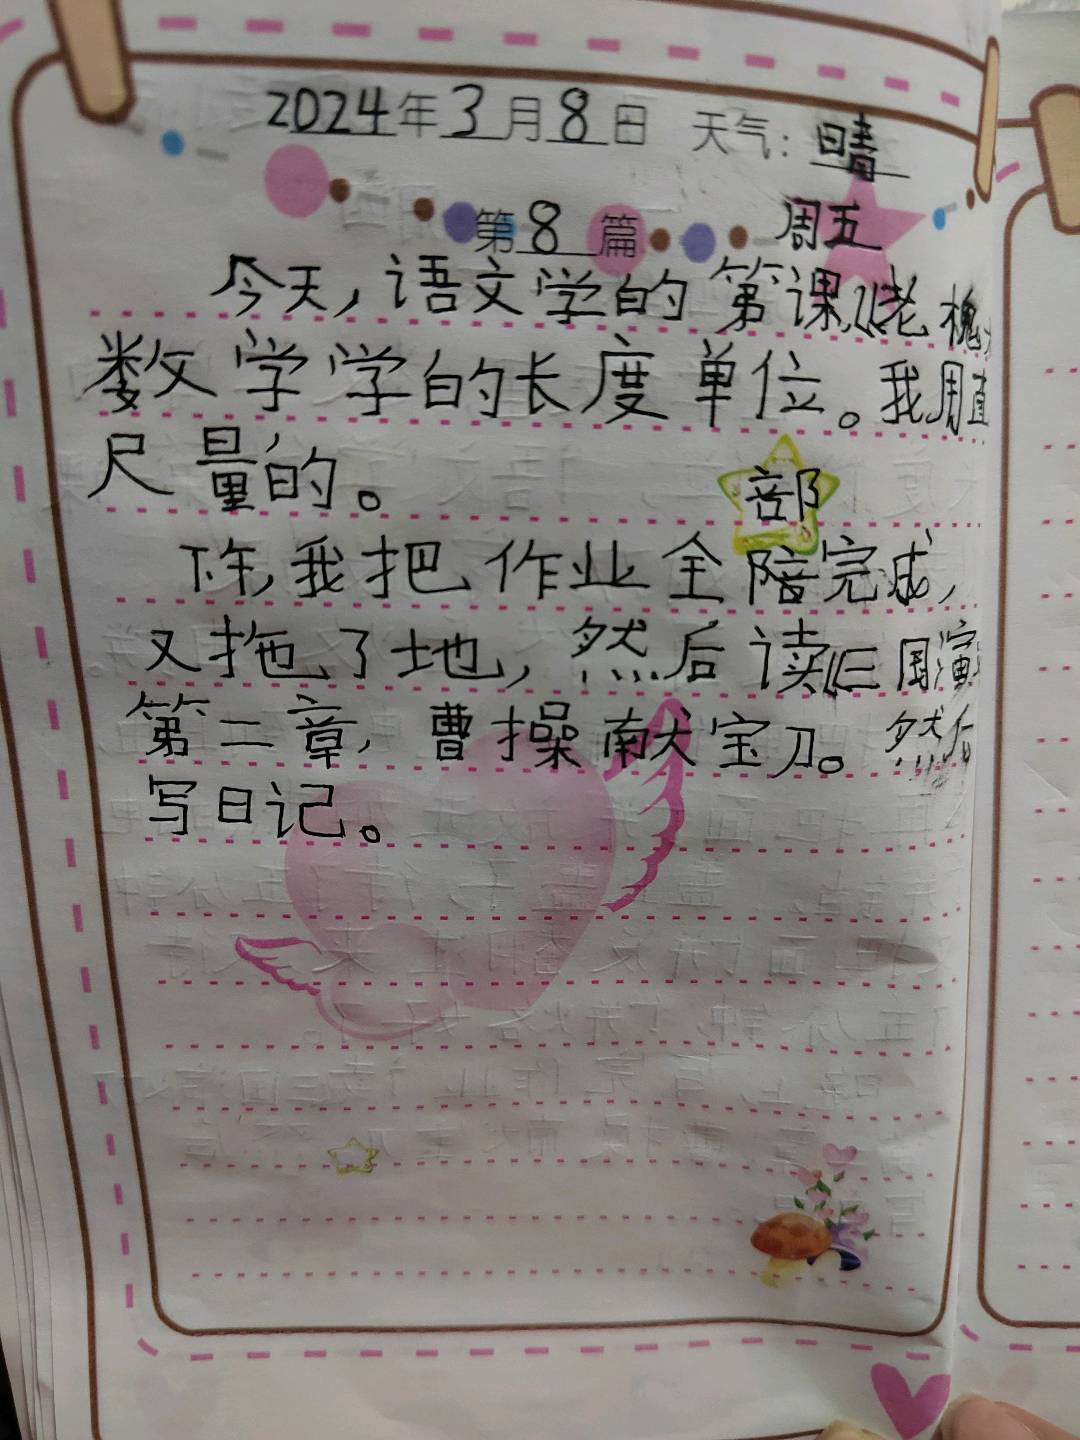 2024年3月8日 天气：晴
第8篇 周五
今天，语文学的第课，《老槐
数学学的长度单位。我用直
尺量的。
部
下午，我把作业全陪完成，
又拖了地，然后读《三国演
第二章，曹操献宝刀。然后
写日记。